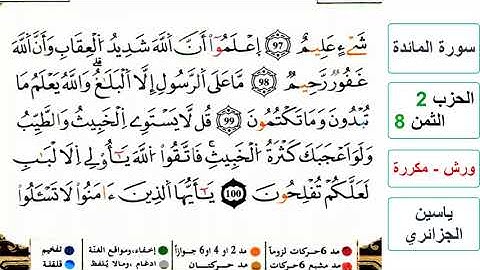 شَےْءٍ عَلِيمٌ ﴿97﴾ اِعْلَمُوٓاْ أَنَّ اَللَّهَ شَدِيدُ اُلْعِقَابِ وَأَنَّ اَللَّهَ
غَفُورٌ رَّحِيمٌ ﴿98﴾ مَّا عَلَى اَلرَّسُولِ إِلَّا اَلْبَلَٰغُ وَاللَّهُ يَعْلَمُ مَا
تُبْدُونَ وَمَا تَكْتُمُونَ ﴿99﴾ قُل لَّا يَسْتَوِے اِلْخَبِيثُ وَالطَّيِّبُ
وَلَوْ أَعْجَبَكَ كَثْرَةُ اُلْخَبِيثِ فَاتَّقُواْ اُللَّهَ يَٰٓأُوْلِے اِلْأَلْبَٰبِ
لَعَلَّكُمْ تُفْلِحُونَ ﴿100﴾ يَٰٓأَيُّهَا اَلذِينَ ءَامَنُواْ لَا تَسْـَٔلُواْ
سورة المائدة
الحزب 2
الثمن 8
ورش - مكررة
ياسين
الجزائري
مد 6 حركات لزوماً
مد 2 او 4 او 6 جوازاً
إخفاء، ومواقع الغنّة
تفخيم
مد مشبع 6 حركات
مد حركتان
ادغام، ومالا يلفظ
قلقلة